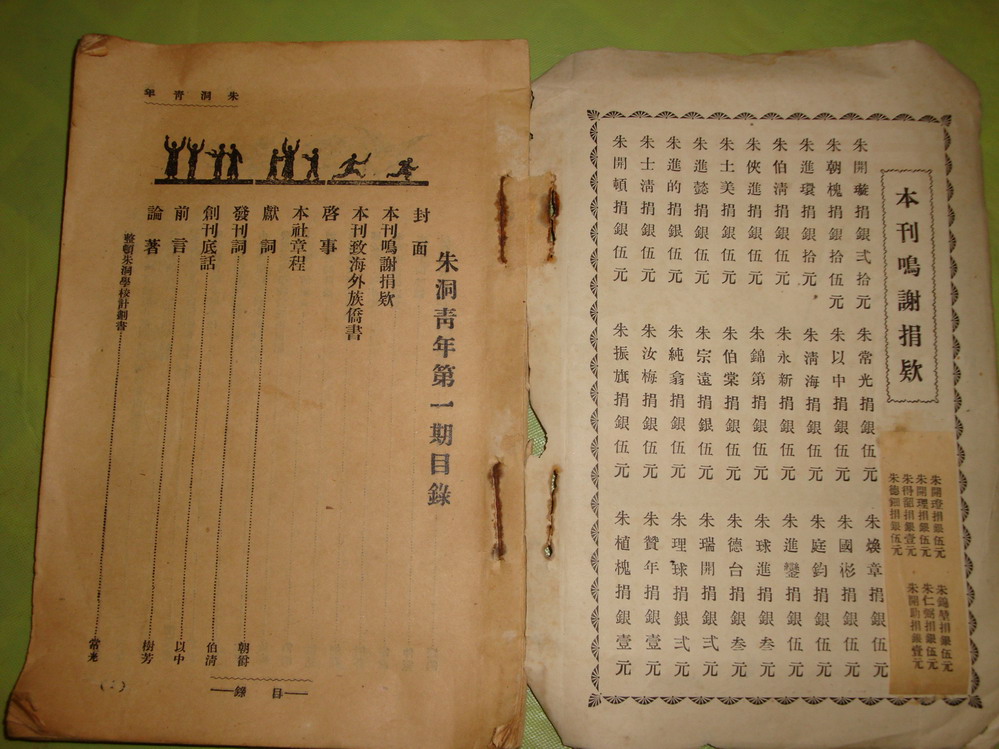 本刊鳴謝捐欵
朱開璇捐銀弍拾元
朱朝槐捐銀拾伍元
朱進環捐銀拾元
朱伯清捐銀拾元
朱俠進捐銀伍元
朱士美捐銀伍元
朱進懿捐銀伍元
朱進的捐銀伍元
朱士清捐銀伍元
朱開頓捐銀伍元
朱常光捐銀伍元
朱以中捐銀伍元
朱清海捐銀伍元
朱永新捐銀伍元
朱錦第捐銀伍元
朱伯棠捐銀伍元
朱宗遠捐銀伍元
朱純翕捐銀伍元
朱汝梅捐銀伍元
朱振旗捐銀伍元
朱煥章捐銀伍元
朱國彬捐銀伍元
朱庭鈞捐銀伍元
朱進鑾捐銀伍元
朱球進捐銀叁元
朱德台捐銀叁元
朱瑞開捐銀弍元
朱理球捐銀弍元
朱贊年捐銀壹元
朱植槐捐銀壹元
朱開璒捐銀伍元
朱開理捐銀伍元
朱得韶捐銀壹元
朱德鈿捐銀伍元
捐銀伍元
朱仁盤捐銀伍元
朱開勛捐銀壹元
朱洞青年
朱洞青年第一期目錄
封面
本刊鳴謝捐欵
本刊致海外族僑書
啓事
本社章程
獻詞
發刊詞 朝
創刊底話 伯清
前言 以中
論著 樹芳
整頓朱洞學校計劃書 常光
目錄